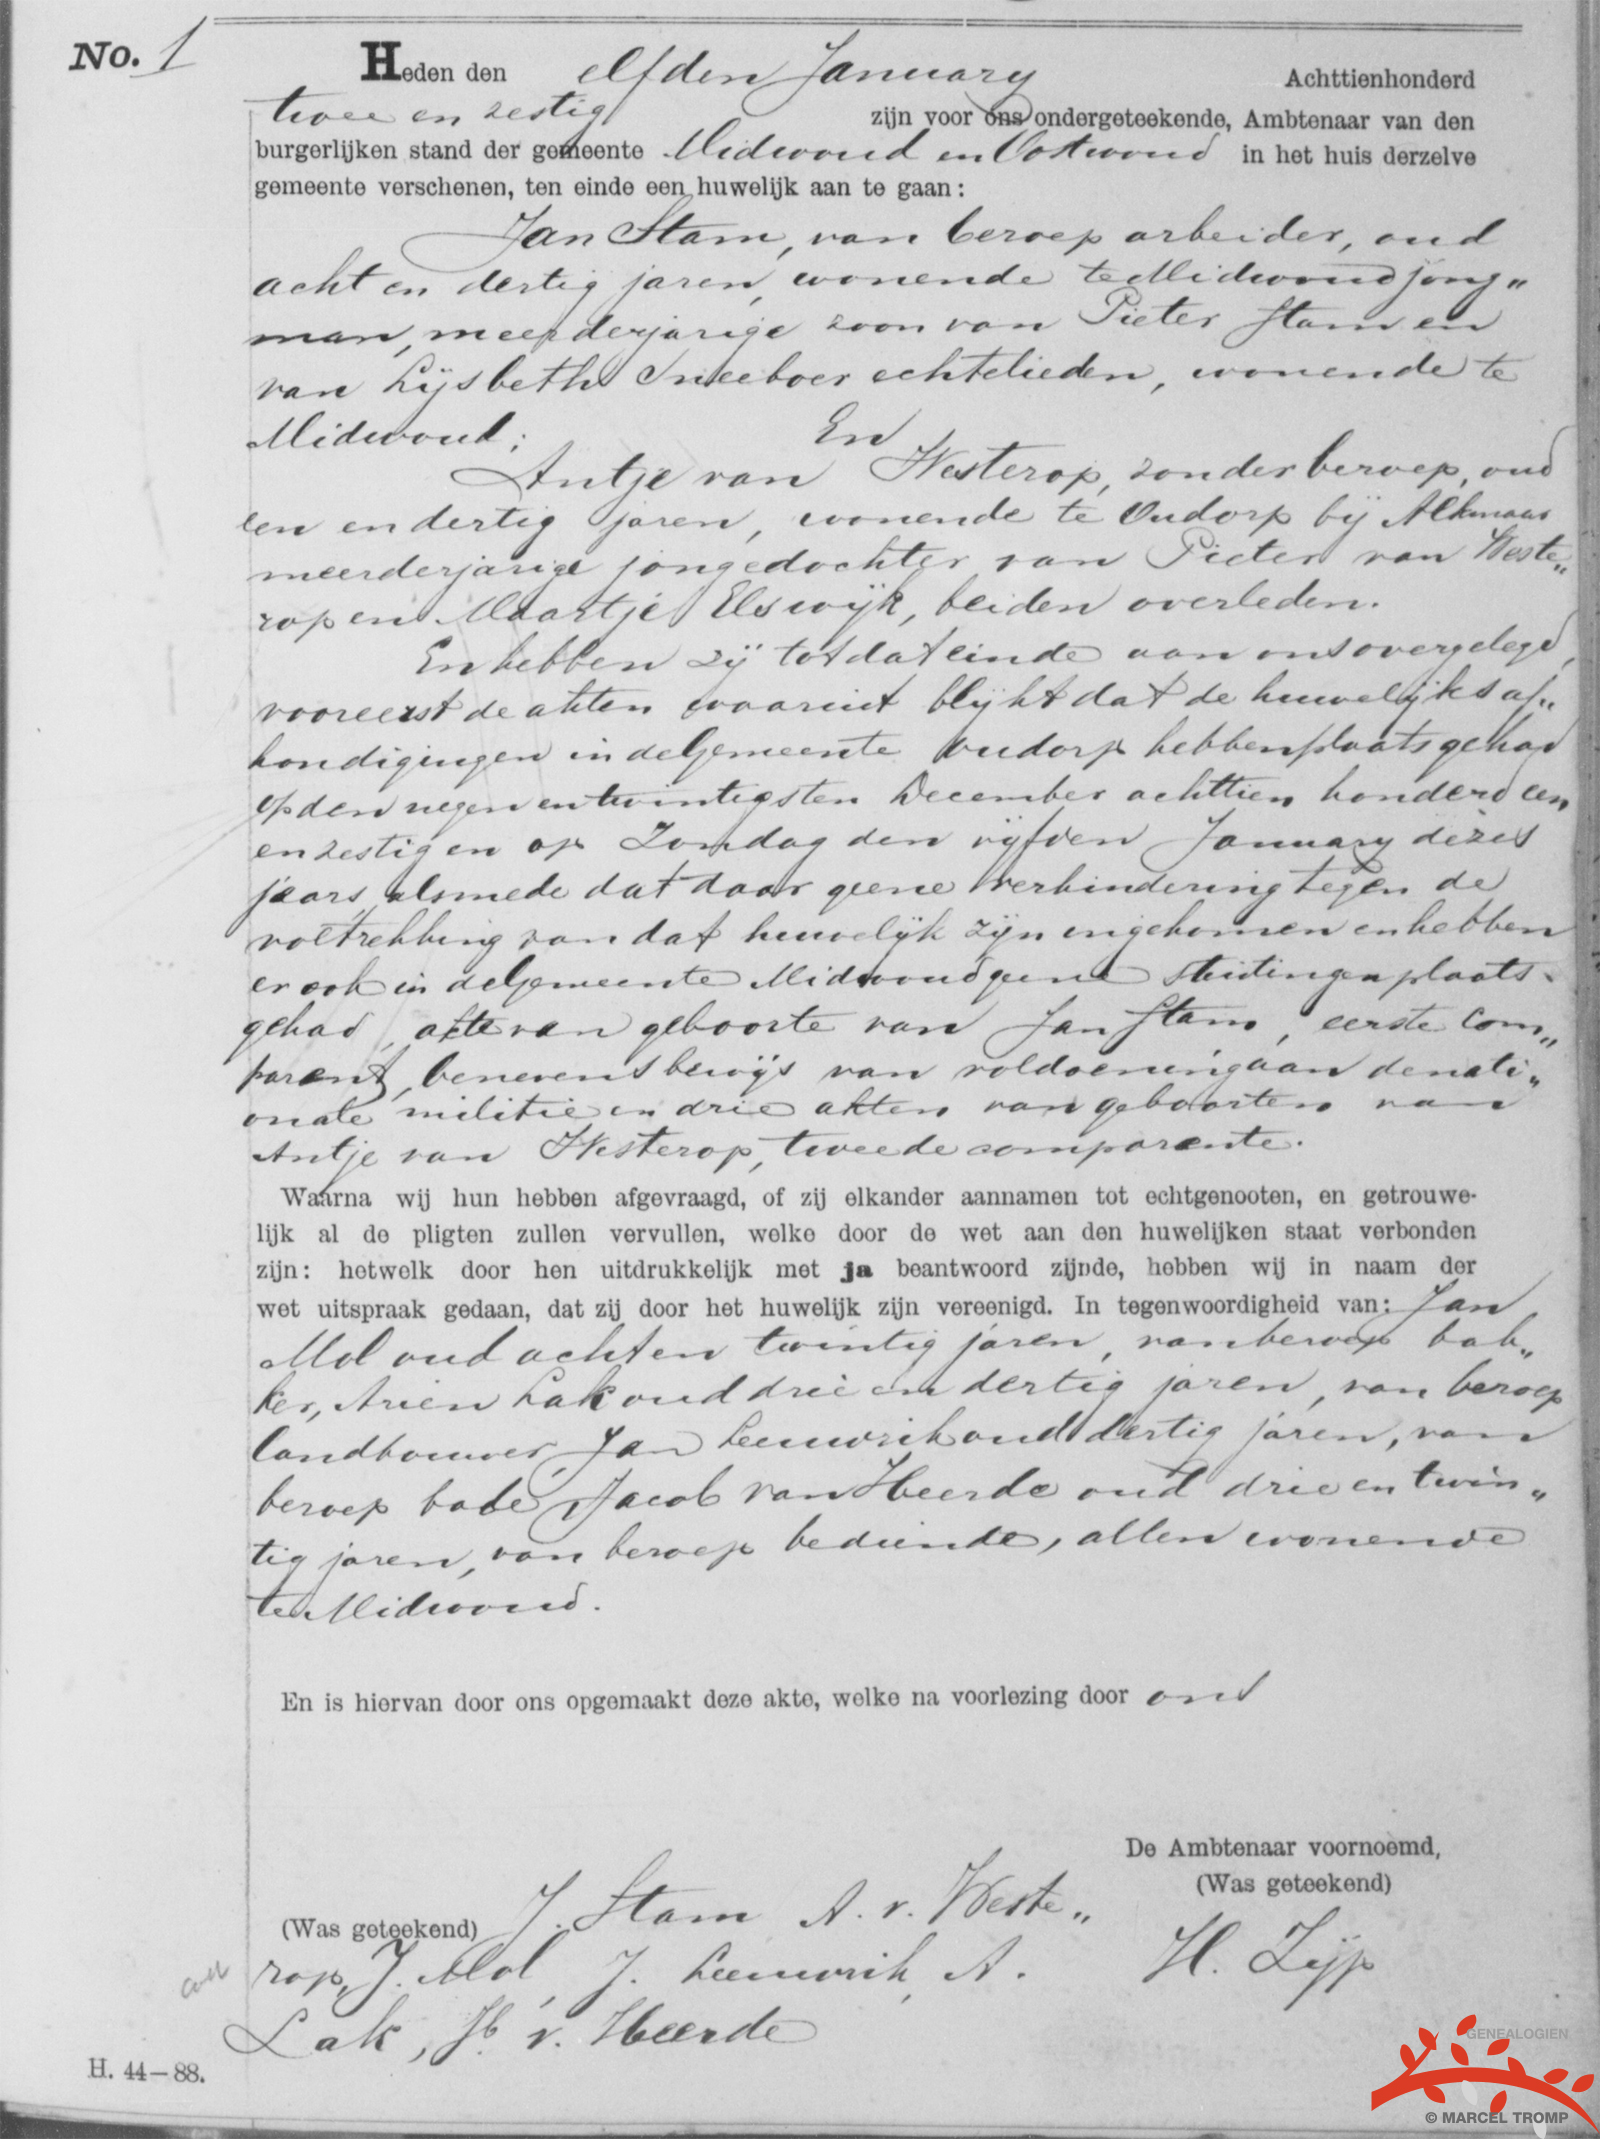 No. 1
Heden den elfden January Achttienhonderd
twee en zestig zijn voor ons ondergeteekende, Ambtenaar van den
burgerlijken stand der gemeente Midwoud en Oostwoud in het huis derzelve
gemeente verschenen, ten einde een huwelijk aan te gaan:
Jan Stam, van beroep arbeider, oud
acht en dertig jaren, wonende te Midwoud jong„
man, meerderjarige zoon van Pieter Stam en
van Lijsbeth Sneeboer echtelieden, wonende te
Midwoud;
En
Antje van Westerop, zonder beroep, oud
een en dertig jaren, wonende te Oudorp bij Alkmaar
meerderjarige jongedochter van Pieter van Weste„
rop en Maartje Elswijk, beiden overleden.
En hebben zij tot dat einde aan ons overgelegd,
vooreerst de akten waaruit blijkt dat de huwelijks af„
kondigingen in de Gemeente Oudorp hebben plaats gehad
op den negen en twintigsten December achttien honderd een
en zestig en op Zondag den vijfden January dezes
jaars, alsmede dat daar geene verhindering tegen de
voltrekking van dat huwelijk zijn ingekomen en hebben
er ook in de Gemeente Midwoud geene stuitingen plaats
gehad, akte van geboorte van Jan Stam, eerste com„
parent, benevens bewijs van voldoening aan de nati„
onale militie en drie akten van geboorten van
Antje van Westerop, tweede comparente.
Waarna wij hun hebben afgevraagd, of zij elkander aannamen tot echtgenooten, en getrouwe-
lijk al de pligten zullen vervullen, welke door de wet aan den huwelijken staat verbonden
zijn: hetwelk door hen uitdrukkelijk met ja beantwoord zijnde, hebben wij in naam der
wet uitspraak gedaan, dat zij door het huwelijk zijn vereenigd. In tegenwoordigheid van: Jan
Mol oud acht en twintig jaren, van beroep bak„
ker, Arien Lak oud drie en dertig jaren, van beroep
landbouwer, Jan Leeuwrik oud dertig jaren, van
beroep bode, Jacob van Heerde oud drie en twin„
tig jaren, van beroep bediende, allen wonende
te Midwoud.
En is hiervan door ons opgemaakt deze akte, welke na voorlezing door ons
De Ambtenaar voornoemd,
(Was geteekend)
H. Zijp
(Was geteekend) J. Stam A. v. Weste„
rop, J. Mol, J. Leeuwrik, A.
Lak, Jb. v. Heerde
H. 44—88.
GENEALOGIEN
© MARCEL TROMP